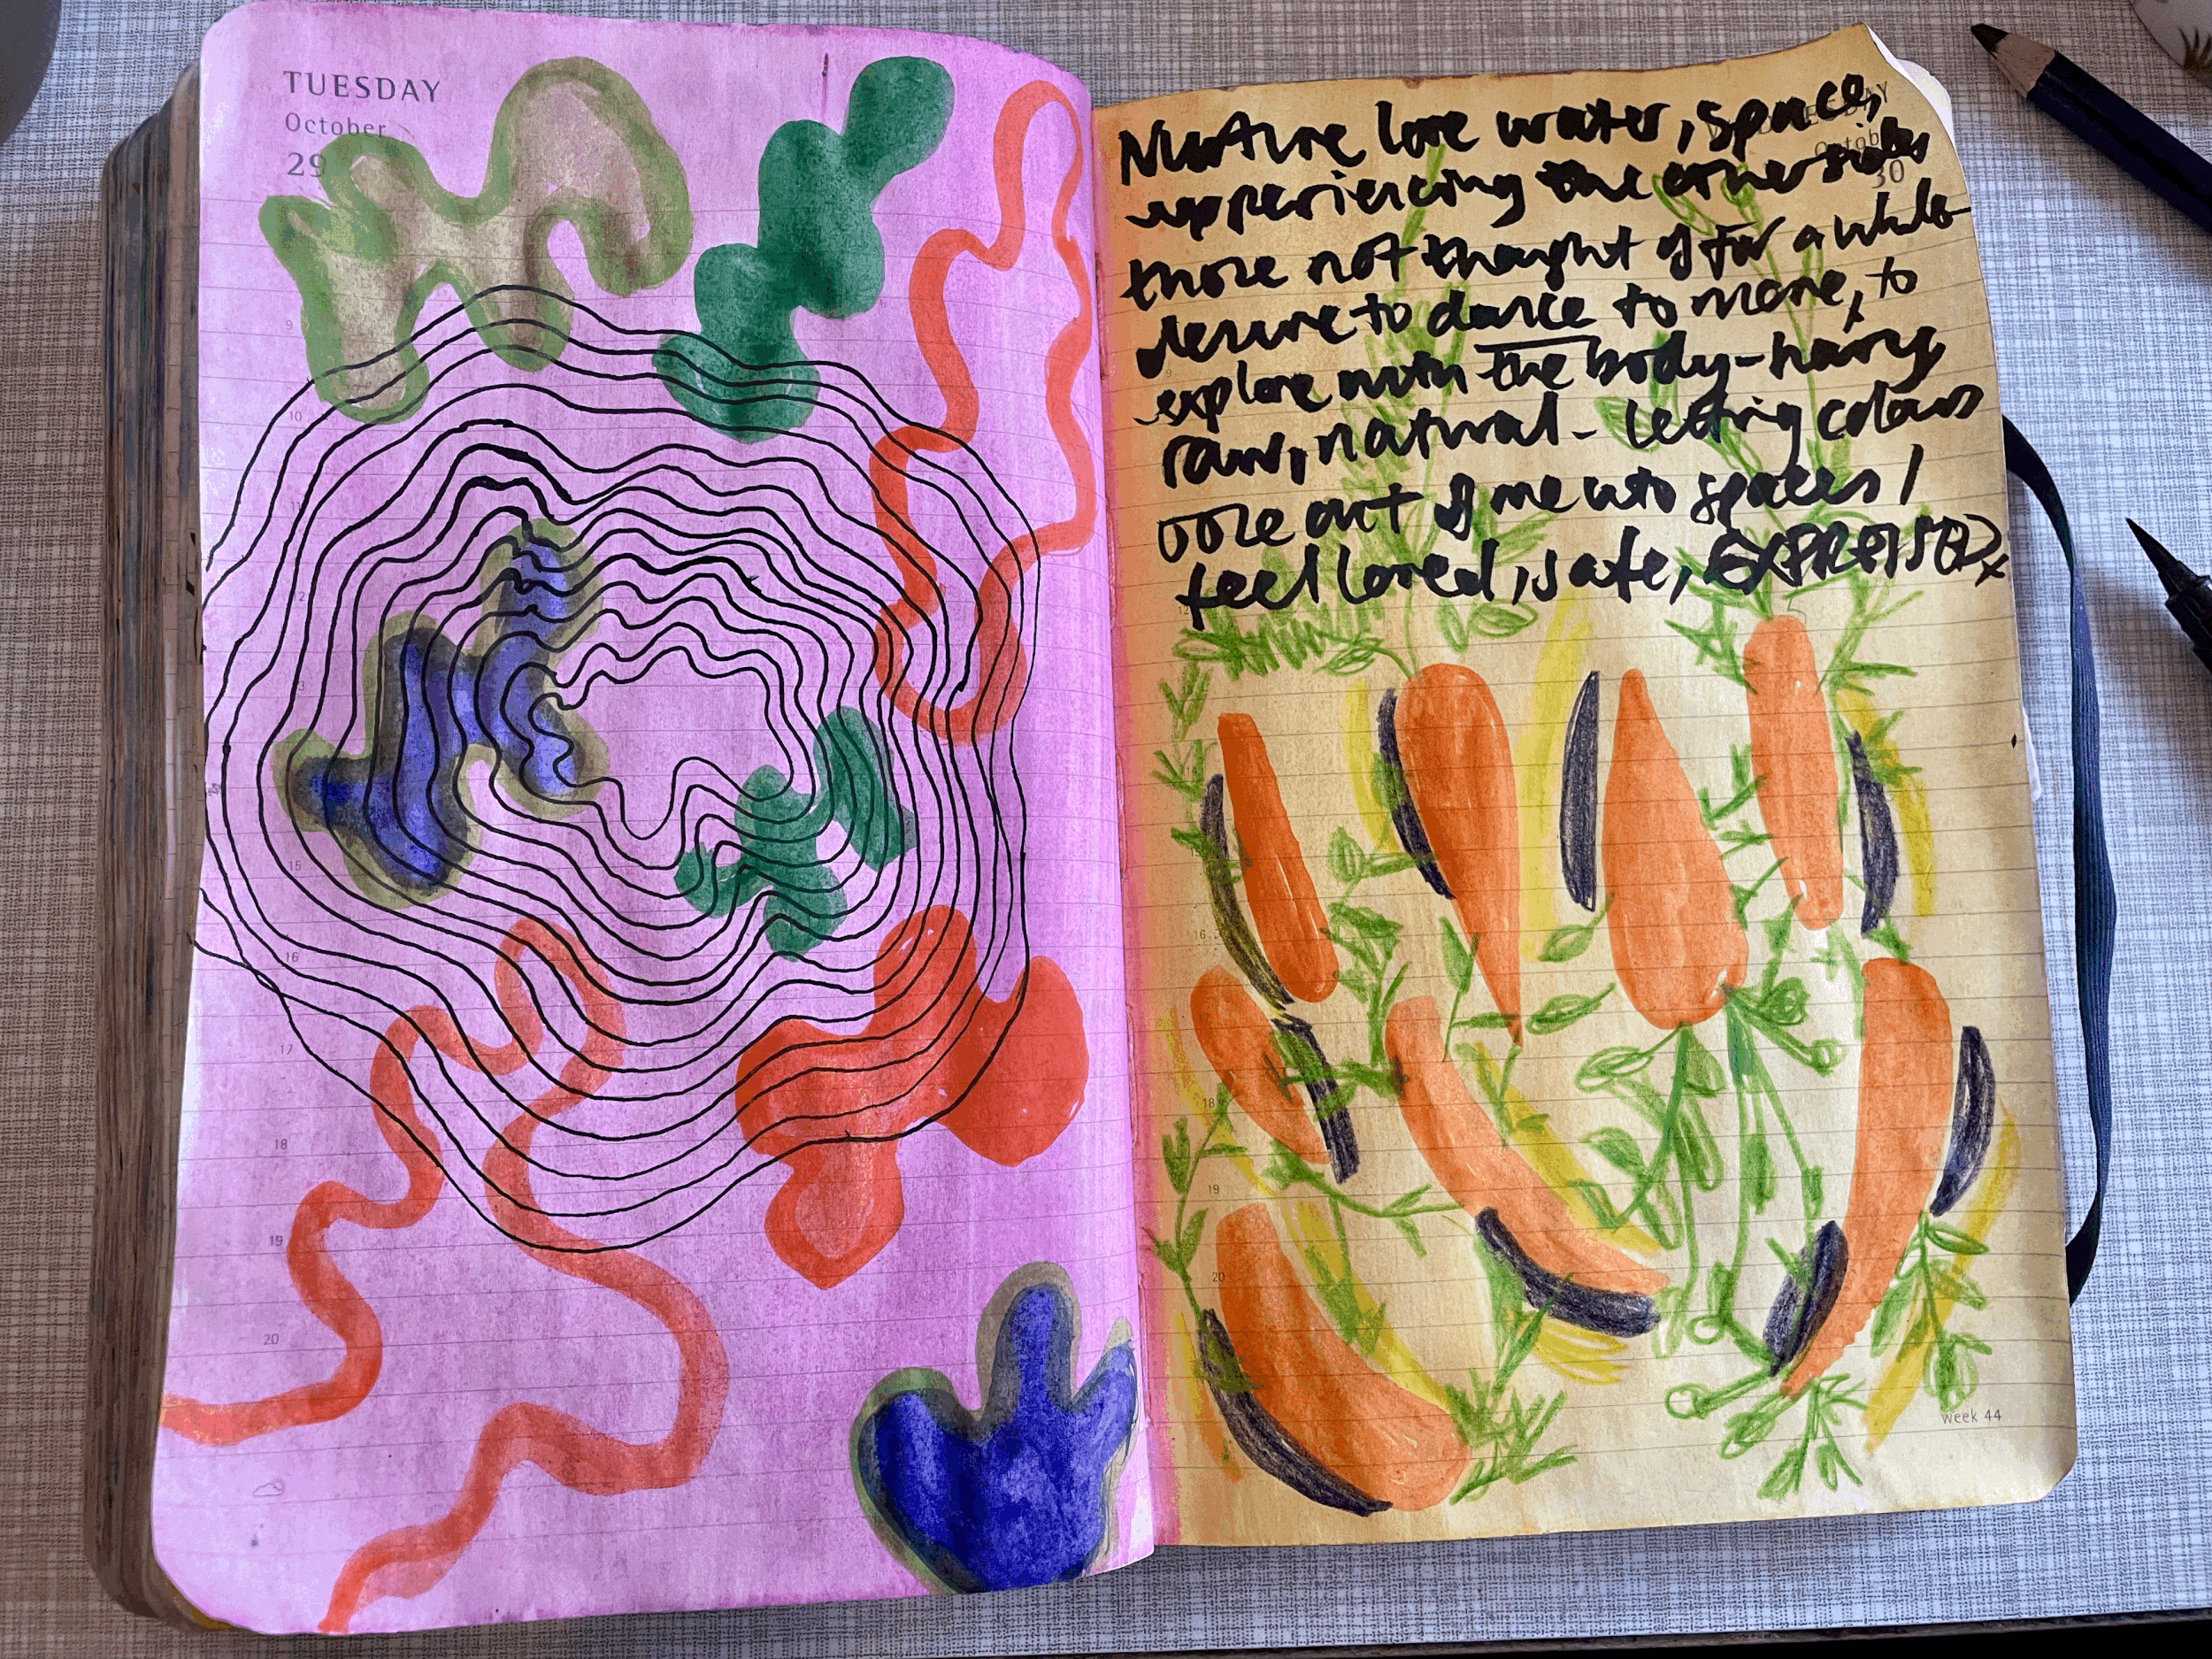 TUESDAY
October
29
9
10
11
12
13
15
16
17
18
19
20
October
30
Nurture love water, space,
experiencing the other sides
those not thought of for a while
desire to dance to move, to
explore with the body - hairy
raw, natural - letting colours
ooze out of me into spaces I
feel loved, safe, EXPRESSED x
9
12
16
17
18
19
20
week 44